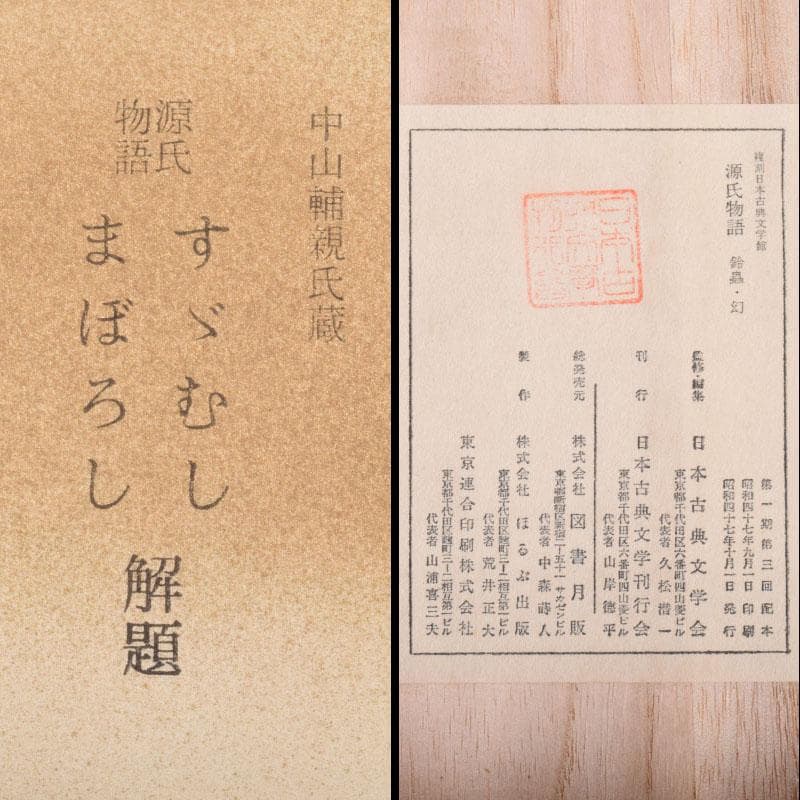 中山輔親氏蔵
源氏
物語
すゞむし
まぼろし
解題
複刻日本古典文学館
源氏物語 鈴蟲・幻
第一期第三回配本
昭和四十七年九月一日印刷
昭和四十七年十月一日発行
監修・編集 日本古典文学会
東京都千代田区六番町四山菱ビル
代表者 久松潜一
刊行 日本古典文学刊行会
東京都千代田区六番町四山菱ビル
代表者 山岸徳平
総発売元 株式会社 図書月販
東京都新宿区新宿二ー五十一 サカゼンビル
代表者 中森蒔人
製作 株式会社 ほるぷ出版
東京都千代田区麹町三ー二相互第一ビル
代表者 荒井正大
東京連合印刷株式会社
東京都千代田区麹町三ー二相互第一ビル
代表者 山浦喜三夫